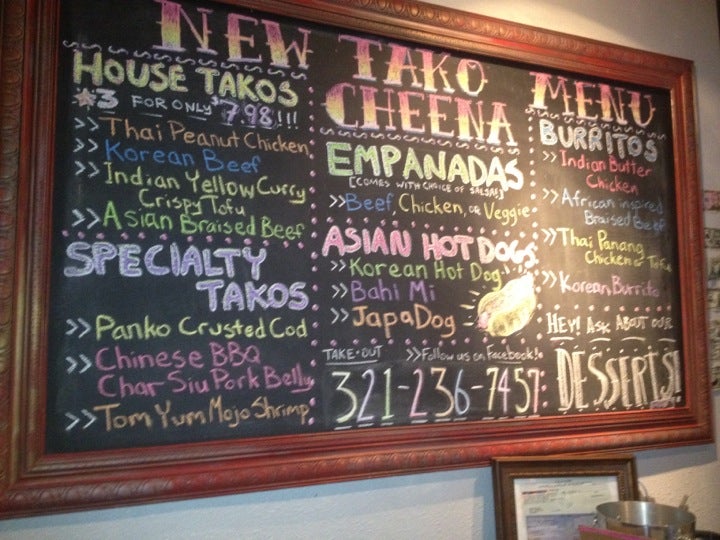 NEW TAKO CHEENA MENU
HOUSE TAKOS
3 FOR ONLY $7.98!!!
>> Thai Peanut Chicken
>> Korean Beef
>> Indian Yellow Curry
Crispy Tofu
>> Asian Braised Beef
SPECIALTY
TAKOS
>> Panko Crusted Cod
>> Chinese BBQ
Char Siu Pork Belly
>> Tom Yum Mojo Shrimp
EMPANADAS
[COMES WITH CHOICE OF SALSAS]
>> Beef, Chicken, or Veggie
ASIAN HOT DOGS
>> Korean Hot Dog
>> Bahi Mi
>> JapaDog
TAKE-OUT >> Follow us on Facebook!
321-236-7457
BURRITOS
>> Indian Butter
Chicken
>> African inspired
Braised Beef
>> Thai Panang
Chicken or Tofu
>> Korean Burrito
HEY! ASK ABOUT OUR
DESSERTS!